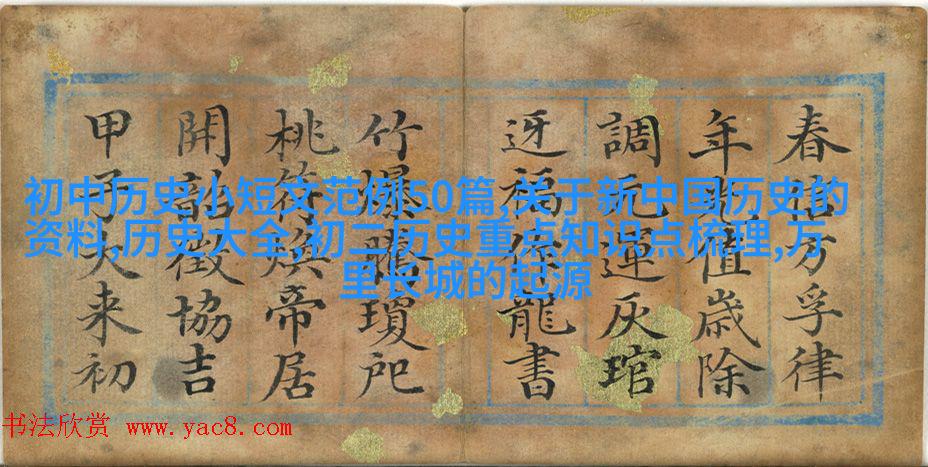 春方孚律
年光值歲除
調元運灰琯
迓福龍書
竹爆騰瓊戺
桃符煥帝居
開韶徵協吉
甲子大来初
初中历史小短文范例50篇,关于新中国历史的
资料,历史大全,初二历史重点知识点梳理,万
里长城的起源
书法欣赏 www.yac8.com